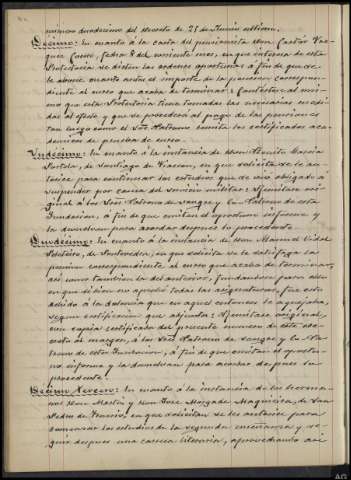 número duodécimo del decreto de 25 de Junio último.
Décimo: En cuanto á la carta del pensionista Don Castor
fecha 8 del corriente mes, en que interesa de esta
Protectoria se dicten las órdenes oportunas á fin de que se
le abone cuanto antes el importe de la pensión correspon-
diente al curso que acaba de terminar: Contéstese al mis-
mo que esta Protectoria tiene tomadas las necesarias medi-
das al efecto y que se procederá al pago de las pensiones
tan luego como el Sor. Patrono remita los certificados aca-
démicos de prueba de curso.
Undécimo: En cuanto á la instancia de Don Benito García
de Santiago de Viascon, en que solicita se le au-
torice para continuar los estudios que se vió obligado á
suspender por causa del servicio militar: Remítase ori-
ginal á los Sres. Patrono de sangre y la Patrona de esta
Fundacion, á fin de que emitan el oportuno informe y
la devuelvan para acordar despues lo procedente.
Duodécimo: En cuanto á la instancia de Don Manuel Vidal
de Pontevedra, en que solicita se le satisfaga la
pension correspondiente al curso que acaba de terminar,
así como tambien la del anterior, fundándose para ello
en que si bien no aprobó todas las asignaturas, fué esto
debido á la dolencia que en aquel entonces le aquejaba,
segun certificacion que adjunta: Remítase original,
con copia certificada del presente número de este de-
creto al margen, á los Sres. Patrono de sangre y la Pa-
trona de esta Fundacion, á fin de que emitan el oportu-
no informe y la devuelvan para acordar despues lo
procedente.
Décimo tercero: En cuanto á la instancia de los herma-
nos Don Martin y Don José Morgade Magariños, de San
Pedro de en que solicitan se les autorice para
comenzar los estudios de la segunda enseñanza y se-
guir despues una carrera literaria, aprovechando así